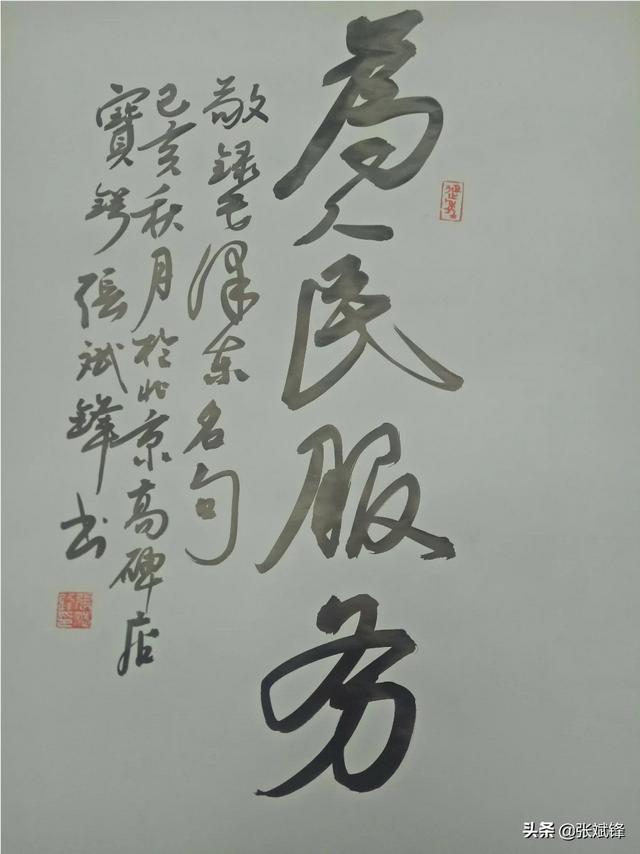 為人民服务
敬録毛澤东名句
己亥秋月於北京高碑店
寶鍔張斌鋒书
头条 @张斌锋